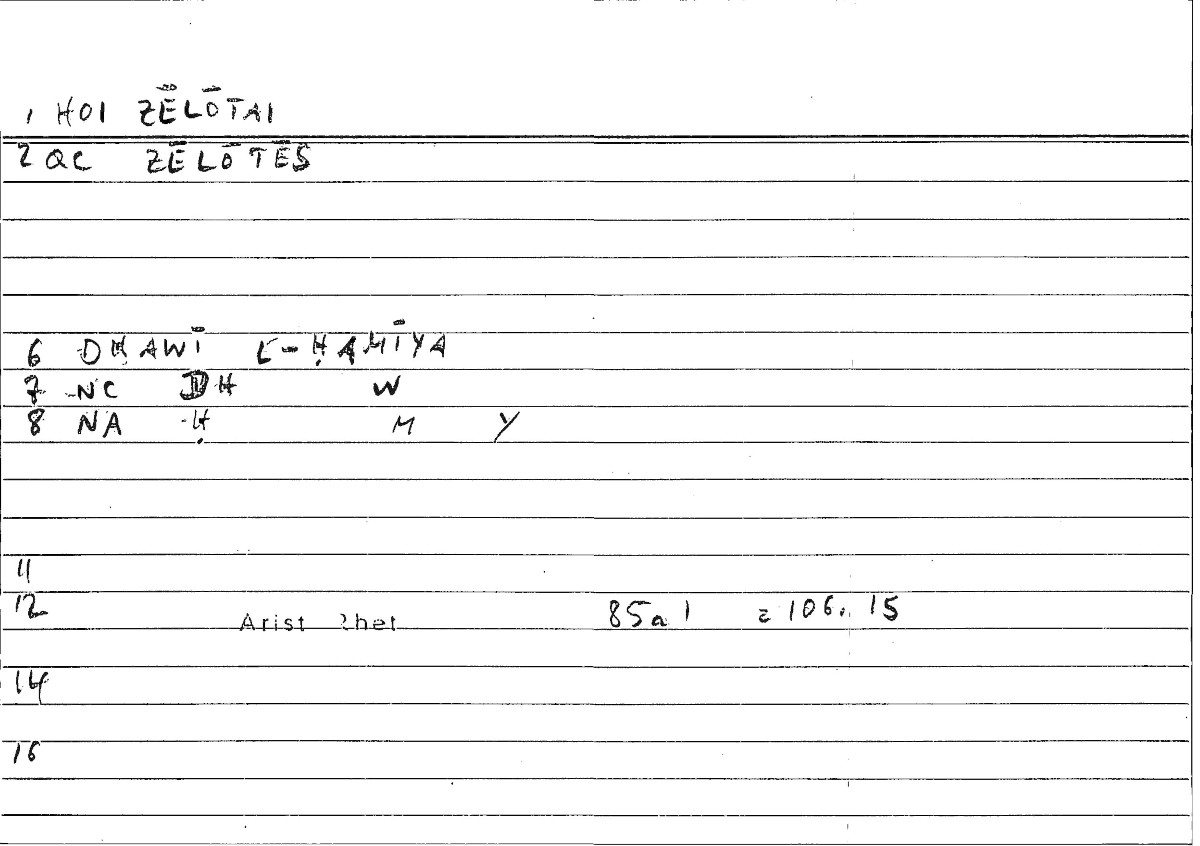 1 HOI ZĒLŌTAI
2 QC ZĒLŌTĒS
6 DHAWĪ L-ḤAMĪYA
7 NC DH W
8 NA Ḥ M Y
11
12 Arist Rhet 85a1 = 106. 15
14
16